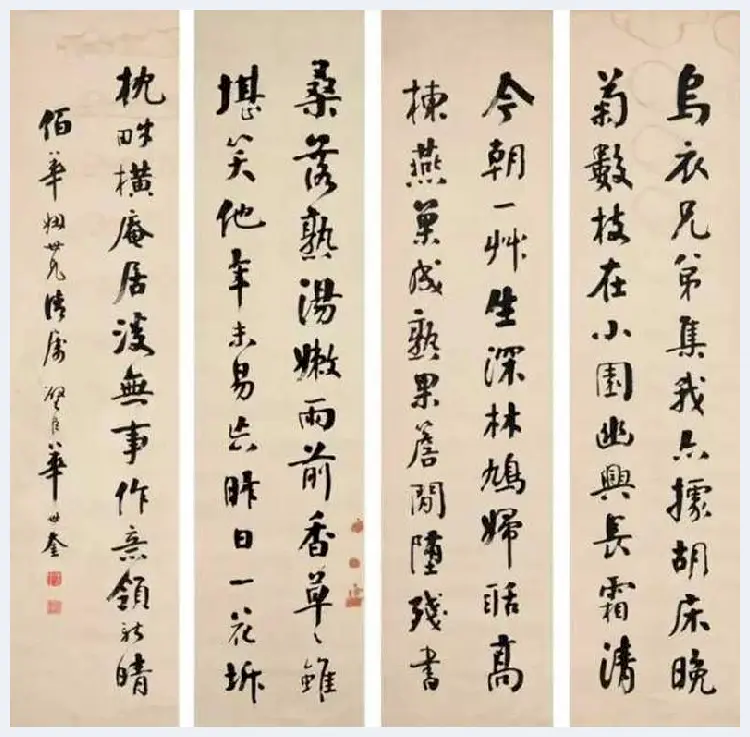 烏衣兄弟集我亦據胡床晚
菊數枝在小園幽興長霜清
桑落熟湯嫩雨前香草〻雖
堪笑他年未易忘昨日一花坼
今朝一艸生深林鳩婦聒高
棟燕巢成熟果簷間墮殘書
枕畔橫庵居無事作意領新晴
佰華姻世兄清屬 璧臣華世奎